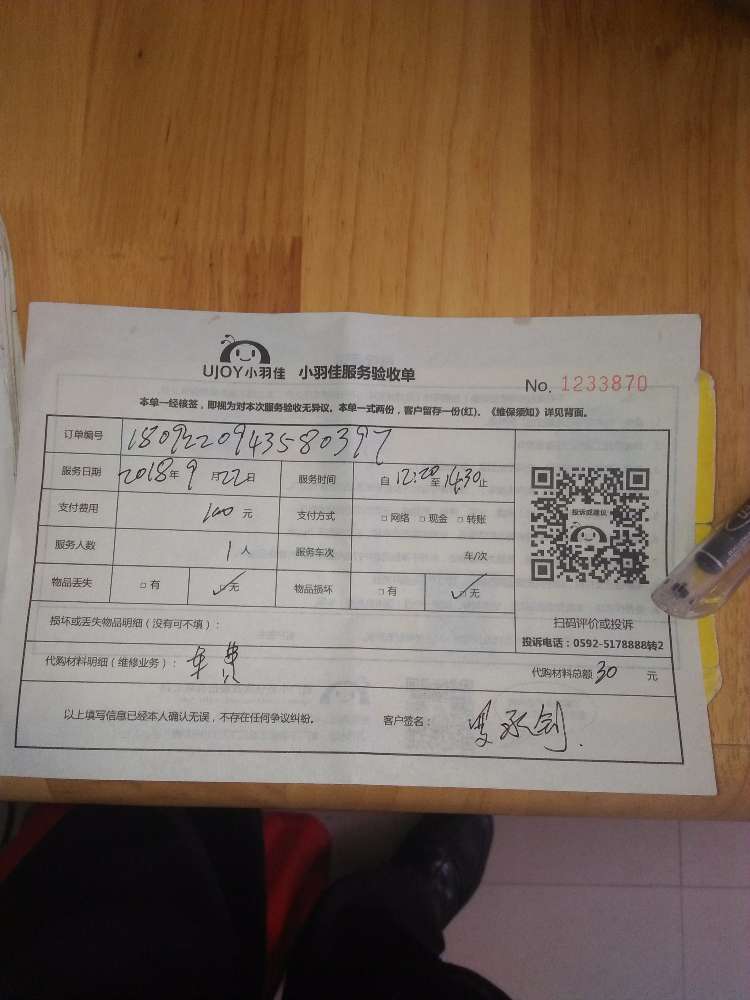 UJOY小羽佳 小羽佳服务验收单
No. 1233870
本单一经核签，即视为对本次服务验收无异议。本单一式两份，客户留存一份(红)。《维保须知》详见背面。
订单编号 1809220943580397
服务日期 2018年9月22日 服务时间 自12:20至14:30止
支付费用 100元 支付方式 □网络 □现金 □转账
服务人数 1人 服务车次 车/次
物品丢失 □有 ☑无 物品损坏 □有 ☑无
投诉或建议
扫码评价或投诉
投诉电话：0592-5178888转2
损坏或丢失物品明细（没有可不填）：
代购材料明细（维修业务）：车费 代购材料总额30元
以上填写信息已经本人确认无误，不存在任何争议纠纷。 客户签名：